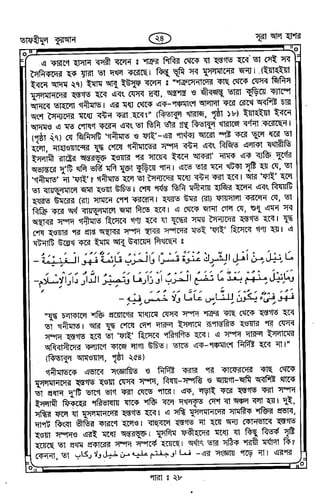 তাফহীমুল কুরআন
২৪
সূরা আল হাশর
এ কারণে হাসান বসরী বলেন : শত্রুর শিবির থেকে যা হস্তগত হবে তা সেই সব
সৈনিকদের হক যারা তা দখল করেছে। কিন্তু ভূমি সব মুসলমানের জন্য। (ইয়াহইয়া
ইবনে আদম ২৭) ইমাম আবু ইউসুফ বলেন : "শত্রুসেনাদের কাছ থেকে যেসব জিনিস
মুসলমানদের হস্তগত হবে এবং যেসব দ্রব্য, অস্ত্রশস্ত্র ও জীবজন্তু তারা কুড়িয়ে ক্যাম্পে
আনবে তাহলো গনীমাত। এর মধ্য থেকে এক-পঞ্চমাংশ আলাদা করে রেখে অবশিষ্ট চার
অংশ সৈন্যদের মধ্যে বণ্টন করা হবে।" (কিতাবুল খারাজ, পৃষ্ঠা ১৮) ইয়াহইয়া ইবনে
আদমও এ মত পোষণ করেন এবং তা তিনি তাঁর গ্রন্থ কিতাবুল খারাজে বর্ণনা করেছেন।
(পৃষ্ঠা ২৭) যে জিনিসটি 'গনীমাত ও ফাই'-এর পার্থক্য আরো স্পষ্ট করে তুলে ধরে তা
হলো, নাহাওয়ান্দের যুদ্ধ শেষে গনীমাতের সম্পদ বণ্টন এবং বিজিত এলাকা যথারীতি
ইসলামী রাষ্ট্রের অন্তরভুক্ত হওয়ার পর সায়েব ইবনে আকরা' নামক এক ব্যক্তি দুর্গের
অভ্যন্তরে দু'টি থলি ভর্তি মণি মুক্তা কুড়িয়ে পান। এতে তার মনে খটকা সৃষ্টি হয় যে, তা
'গনীমাত' না 'ফাই'? গনীমাত হলে তা সৈন্যদের মধ্যে বণ্টন করা হবে। আর 'ফাই' হলে
তা বায়তুলমালে জমা হওয়া উচিত। শেষ পর্যন্ত তিনি মদীনায় হাজির হলেন এবং বিষয়টি
হযরত উমরের (রা) সামনে পেশ করলেন। হযরত উমর (রা) ফায়সালা করলেন যে, তা
বিক্রি করে অর্থ বায়তুলমালে জমা দিতে হবে। এ থেকে জানা গেল যে, শুধু এমন সব
অস্থাবর সম্পদ গনীমাত হিসেবে গণ্য হবে যা যুদ্ধের সময় সৈন্যদের হস্তগত হবে। যুদ্ধ
শেষ হওয়ার পর প্রাপ্ত অস্থাবর সম্পদ স্থাবর সম্পদের মতই 'ফাই' হিসেবে গণ্য হয়। এ
ঘটনাটি উল্লেখ করে ইমাম আবু উবায়েদ লিখছেন :
مَا نِيْلَ مِنْ أَهْلِ الشِّرْكِ عَنْوَةً قَسْرًا وَالْحَرْبُ قَائِمَةٌ فَهُوَ الْغَنِيْمَةُ -
وَمَا نِيْلَ مِنْهُمْ بَعْدَ مَا تَضَعُ الْحَرْبُ أَوْزَارَهَا وَتَصِيْرُ الدَّارُ دَارَالْإِسْلَامِ -
فَهُوَ فَىْءٌ يَكُوْنُ لِلنَّاسِ عَامًا وَلَا خُمُسَ فِيْهِ -
"যুদ্ধ চলাকালে শক্তি প্রয়োগের মাধ্যমে যেসব সম্পদ শত্রুর কাছ থেকে হস্তগত হবে
তা গনীমাত। আর যুদ্ধ শেষে দেশ দারুল ইসলামে রূপান্তরিত হওয়ার পর যেসব
সম্পদ হস্তগত হবে তা 'ফাই' হিসেবে পরিগণিত হবে। এ সম্পদ দারুল ইসলামের
অধিবাসীদের কল্যাণে কাজে লাগা উচিত। তাতে এক-পঞ্চমাংশ নির্দিষ্ট হবে না।"
(কিতাবুল আমওয়াল, পৃষ্ঠা ২৫৪)
গনীমাতকে এভাবে সংজ্ঞায়িত ও নির্দিষ্ট করার পর কাফেরদের কাছ থেকে
মুসলমানদের হস্তগত হওয়া যেসব সম্পদ, বিষয়-সম্পত্তি ও জায়গা-জমি অবশিষ্ট থাকে
তা প্রধান দু'টি ভাগে ভাগ করা যেতে পারে। এক, লড়াই করে হস্তগত করা সম্পদ
ইসলামী ফিকাহের পরিভাষায় যাকে শক্তি বলে দখলকৃত দেশ বা অঞ্চল বলা হয়। দুই,
সন্ধির ফলে যা মুসলমানদের হস্তগত হবে। এ সন্ধি মুসলমানদের সামরিক শক্তির প্রভাব,
দাপট কিংবা ভীতির কারণে হলেও। বাহুবলে হস্তগত না হয়ে অন্য কোনভাবে হস্তগত
হওয়া সম্পদও এরই মধ্যে অন্তরভুক্ত। মুসলিম ফকীহদের মধ্যে যা কিছু বিতর্ক সৃষ্টি
হয়েছে তা প্রথম প্রকারের সম্পদ সম্পর্কে হয়েছে। অর্থাৎ তার সঠিক শরয়ী মর্যাদা কি?
কেননা, তা فما أوجفتم عليه من خيل ولا ركاب -এর সংজ্ঞায় পড়ে না। এরপর
পারা : ২৮